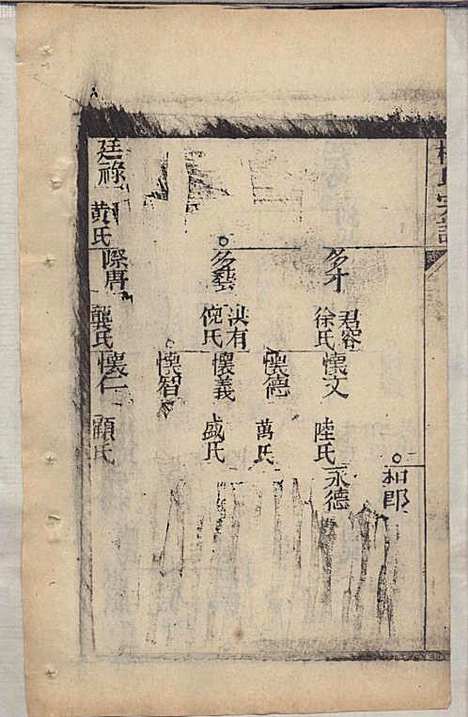 氏宗譜
和郎
多才 君容 徐氏 懷文 陸氏 永德
懷德 萬氏
多藝 洪有 倪氏 懷義 盛氏
懷智
廷祿 黃氏 際唐 龔氏 懷仁 顧氏